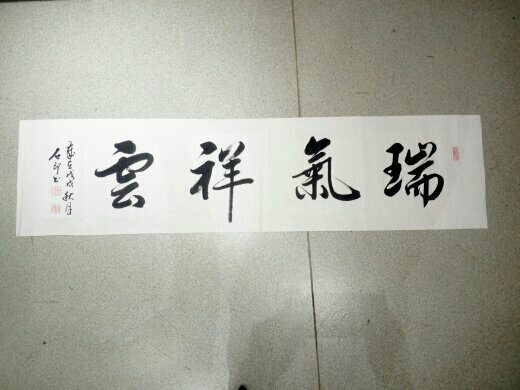 瑞氣祥雲
歲在戊戌秋月
石印书